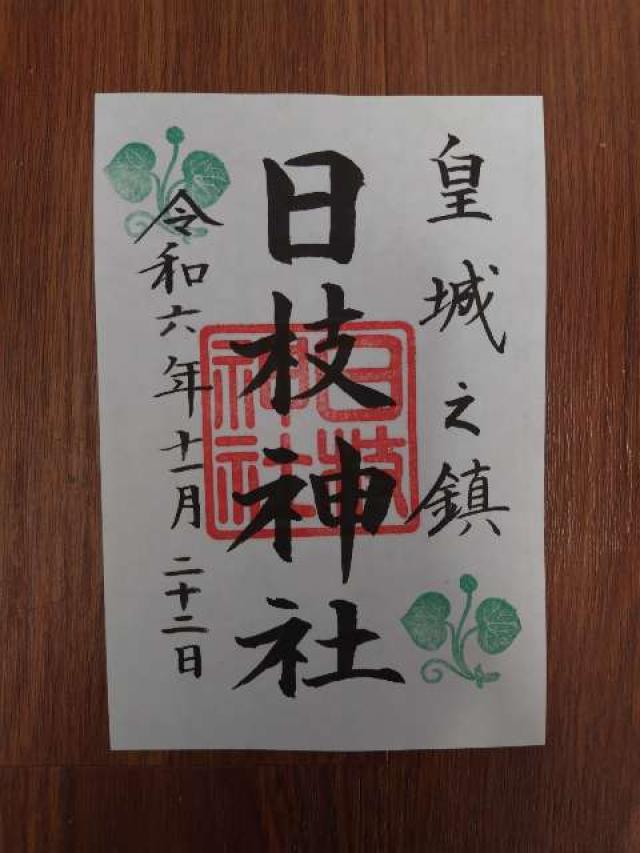 皇城之鎮
日枝神社
日枝神社
令和六年十一月二十二日